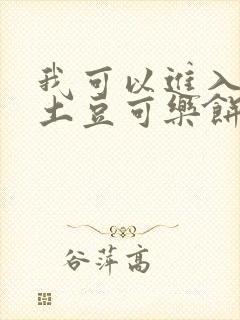 我可以進入
土豆可樂餅
谷萍高